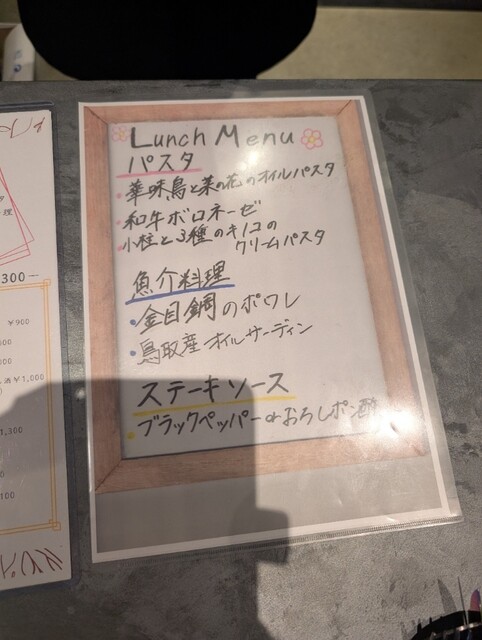 Lunch Menu
パスタ
・華味鳥と菜の花のオイルパスタ
・和牛ボロネーゼ
・小柱と3種のキノコの
クリームパスタ
魚介料理
・金目鯛のポワレ
・鳥取産オイルサーディン
ステーキソース
・ブラックペッパー orおろしポン酢
理
300-
¥900
000
000
酒¥1,000
,300
100